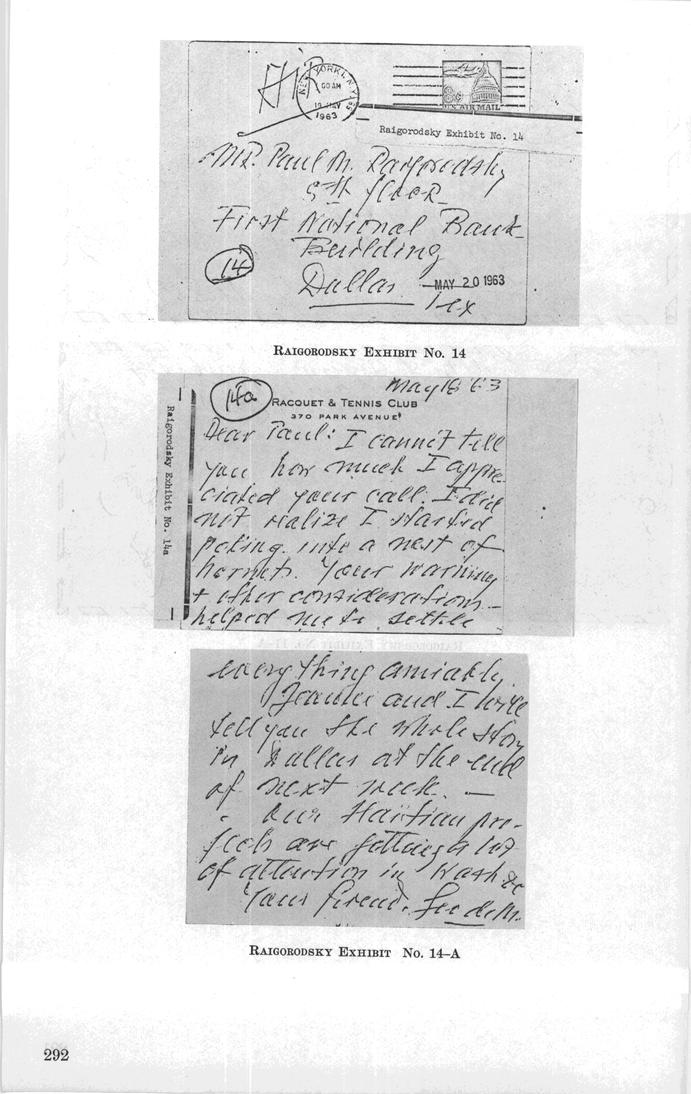 NEW YORK 1, N.Y.
00 AM
MAY
1963
8¢
U.S. AIR MAIL
Raigorodsky Exhibit No. 14
Mr. Paul M. Raigorodsky
5th floor
First National Bank
Building
14
Dallas
MAY 20 1963
Tex
RAIGORODSKY EXHIBIT No. 14
May 18 63
14a
RACQUET & TENNIS CLUB
370 PARK AVENUE
Raigorodsky Exhibit No. 14a
Dear Paul: I cannot tell
you how much I appre-
ciated your call. I did
not realize I started
poking into a nest of
hornets. Your warning
+ other considerations—
helped me to settle
everything amiably.
Jeanne and I will
tell you the whole story
in Dallas at the end
of next week. —
Our Haitian pro-
jects are getting a lot
of attention in Wash DC
Your friend, Geo de M.
RAIGORODSKY EXHIBIT No. 14–A
292